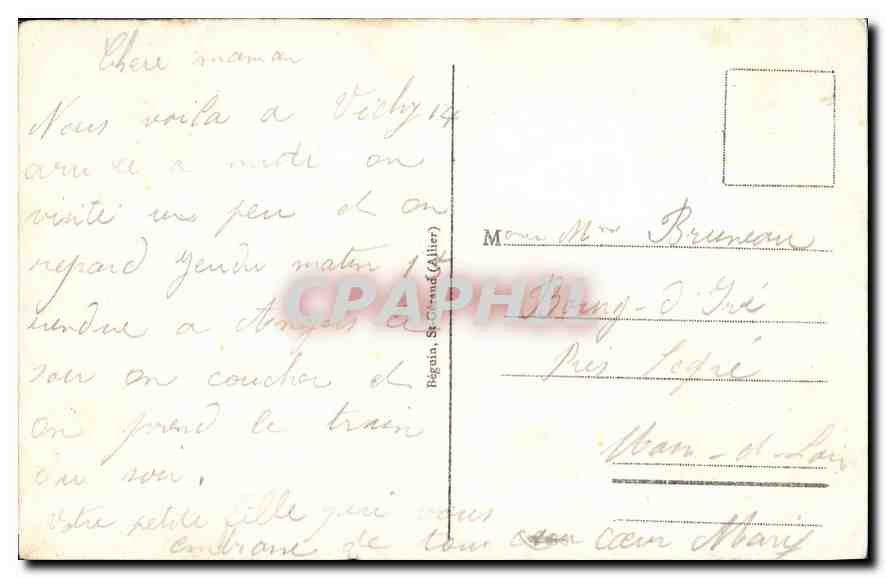 Chere maman
Nous voila a Vichy
arrivé a midi on
visite un peu et on
repard jeudi matin
rendue a Angers a
soir on coucher et
on prend le train
du soir.
Votre petite fille qui vous
embrasse de tou cœur Marie
Béguin, St-Gérand (Allier)
CPAPHIL
M Mme Bruneau
Bourg-d Iré
Près Segré
Main-et-Loir